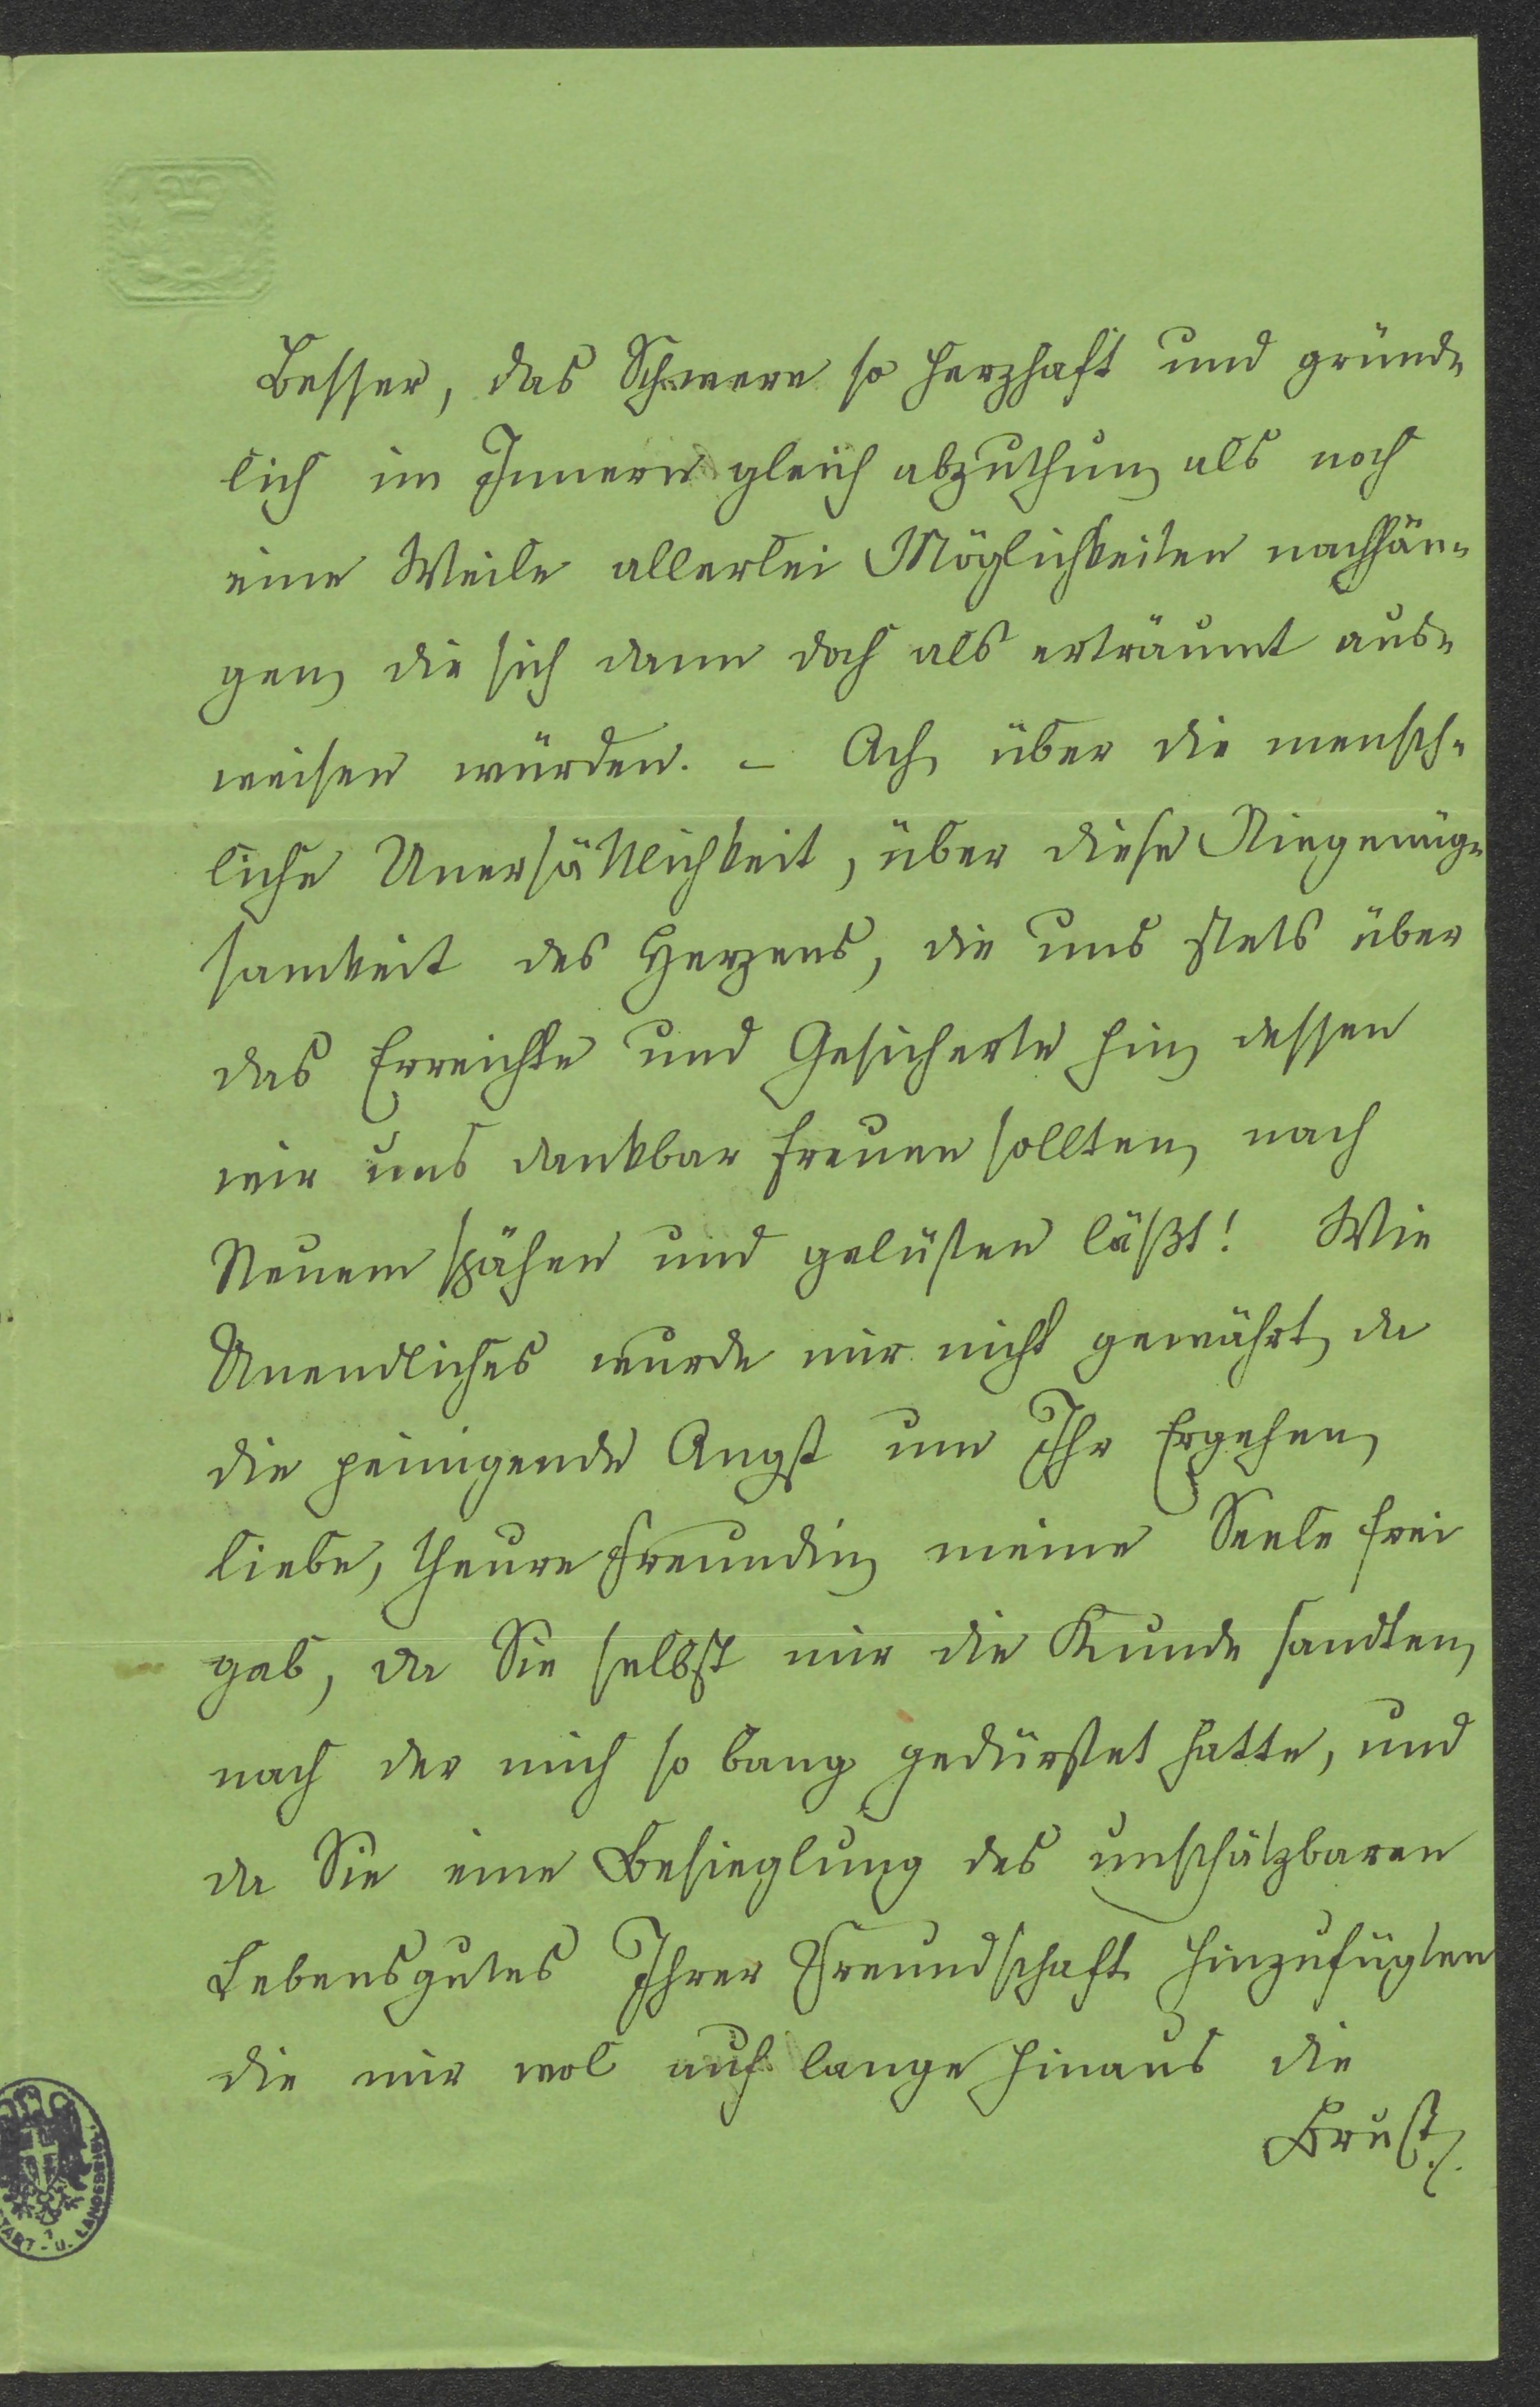 Besser, das Schwere so herzhaft und gründ-
lich im Innern gleich abzuthun, als noch
eine Weile allerlei Möglichkeiten nachhän-
gen, die sich dann doch als erträumt aus-
weisen würden. – Ach, über die mensch-
liche Unersättlichkeit, über diese Niegenüg-
samkeit des Herzens, die uns stets über
das Erreichte und Gesicherte hin, dessen
wir uns dankbar freuen sollten, nach
Neuem spähen und gelüsten läßt! Wie
Unendliches wurde mir nicht gewährt, da
die peinigende Angst um Ihr Ergehen,
liebe, theure Freundin, meine Seele frei
gab, da Sie selbst mir die Kunde sandten,
nach der mich so bang gedürstet hatte, und
da Sie eine Besieglung des unschätzbaren
Lebensgutes Ihrer Freundschaft hinzufügten
die mir wol auf lange hinaus die
Brust
U. LANDESBIBL.